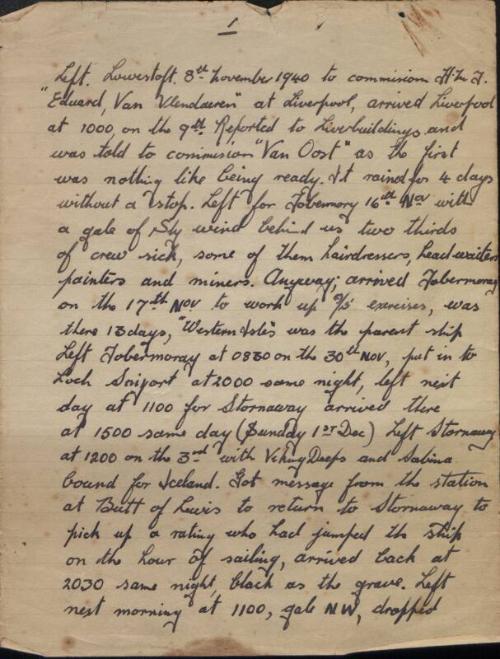 1
Left. Lowestoft, 8th November 1940 to commission H.M.T.
"Eduard, Van Vlendaeren" at Liverpool, arrived Liverpool
at 1000, on the 9th. Reported to Liverbuildings and
was told to commision "Van Oost" as the first
was nothing like being ready. It raind for 4 days
without a stop. Left for Tobermory 16th Nov with
a gale of Sly wind behind us, two thirds
of crew sick, some of them hairdressers, head waiters
painters and miners. Anyway; arrived Tobermoray
on the 17th Nov to work up exercises, was
there 13 days, "Western Isles" was the parent ship
Left Tobermoray at 0830 on the 30th Nov, put in to
Loch Sciport at 2000 same night, left next
day at 1100 for Stornaway arrived there
at 1500 same day (Sunday 1st Dec) Left Stornaway
at 1200 on the 3rd with Viking Deeps and Sabina
bound for Iceland. Got message from the station
at Butt of Lewis to return to Stornaway to
pick up a rating who had jumped the ship
on the hour of sailing, arrived back at
2030 same night, black as the grave. Left
next morning at 1100, gale NW, dropped